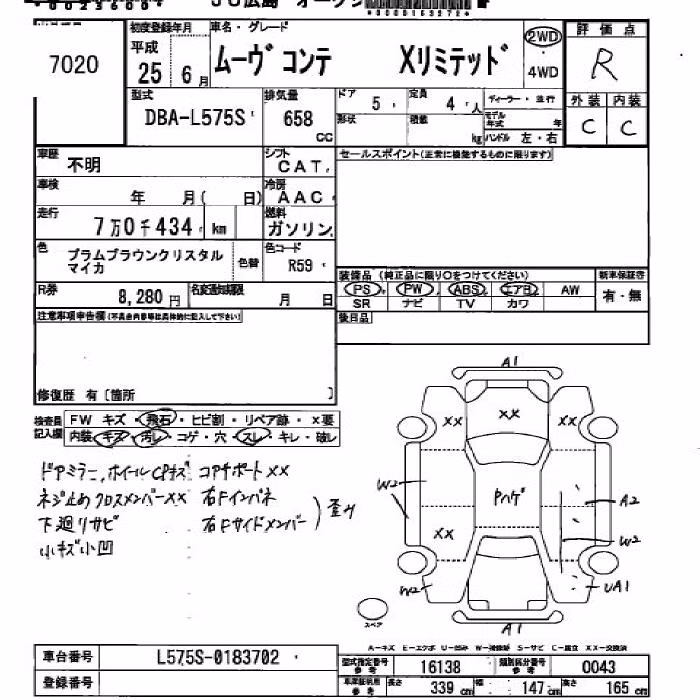 JU広島 オークション
7020
初度登録年月
平成
25 6月
車名・グレード
ムーヴコンテ Xリミテッド
2WD
・
4WD
評価点
R
外装 内装
C C
型式
DBA-L575S
排気量
658
CC
ドア
5
定員
4人
ディーラー・並行
形状
積載
kg
モデル年式 年
ハンドル 左・右
車歴
不明
シフト
CAT
セールスポイント(正常に機能するものに限ります)
車検
年 月( 日)
冷房
AAC
走行
7万0千434 km
燃料
ガソリン
色
プラムブラウンクリスタル
マイカ
色替
色コード
R59
R券
8,280 円
名変通知期限
月 日
装備品 (純正品に限り○をつけてください)
PS PW ABS エアB AW
SR ナビ TV カワ
新車保証書
有・無
後日品
注意事項申告欄(不具合内容等は具体的に記入して下さい)
修復歴 有〔箇所 〕
検査員
記入欄
FW キズ・飛石・ヒビ割・リペア跡・X要
内装・キズ・汚レ・コゲ・穴・スレ・キレ・破レ
ドアミラー、ホイールCPキズ コアサポートXX
ネジ止めクロスメンバーXX 右Fインパネ
下廻リサビ 右Fサイドメンバー
)歪み
小キズ小凹
A1
XX XX XX
W2
Pハゲ
A2
XX
W2
W2
UA1
スペア
A1
A-キズ E-エクボ U-凹み W-補修跡 S-サビ C-腐立 XX-交換済
車台番号
L575S-0183702
登録番号
型式指定番号
参考
16138
類別区分番号
参考
0043
車庫証明用
参考
長さ
339 cm
幅
147 cm
高さ
165 cm